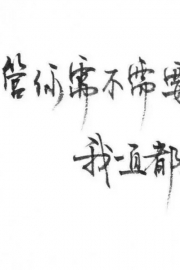 管你需不需要
我一直都